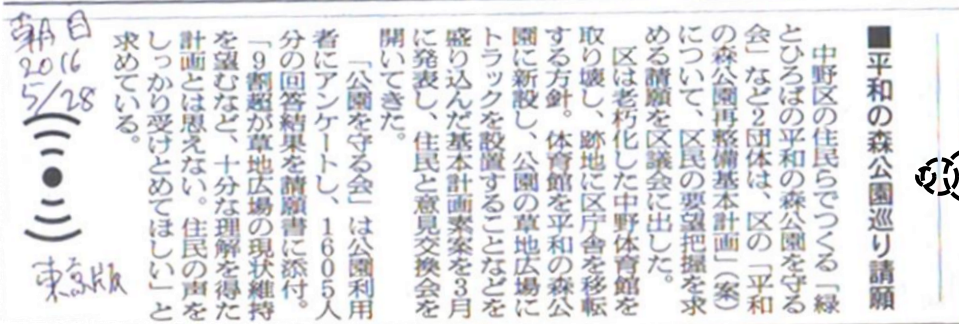 ■平和の森公園巡り請願
中野区の住民らでつくる「緑
とひろばの平和の森公園を守る
会」など2団体は、区の「平和
の森公園再整備基本計画」(案)
について、区民の要望把握を求
める請願を区議会に出した。
区は老朽化した中野体育館を
取り壊し、跡地に区庁舎を移転
する方針。体育館を平和の森公
園に新設し、公園の草地広場に
トラックを設置することなどを
盛り込んだ基本計画素案を3月
に発表し、住民と意見交換会を
開いてきた。
「公園を守る会」は公園利用
者にアンケートし、1605人
分の回答結果を請願書に添付。
「9割超が草地広場の現状維持
を望むなど、十分な理解を得た
計画とは思えない。住民の声を
しっかり受けとめてほしい」と
求めている。
朝日
2016
5/28
東京版